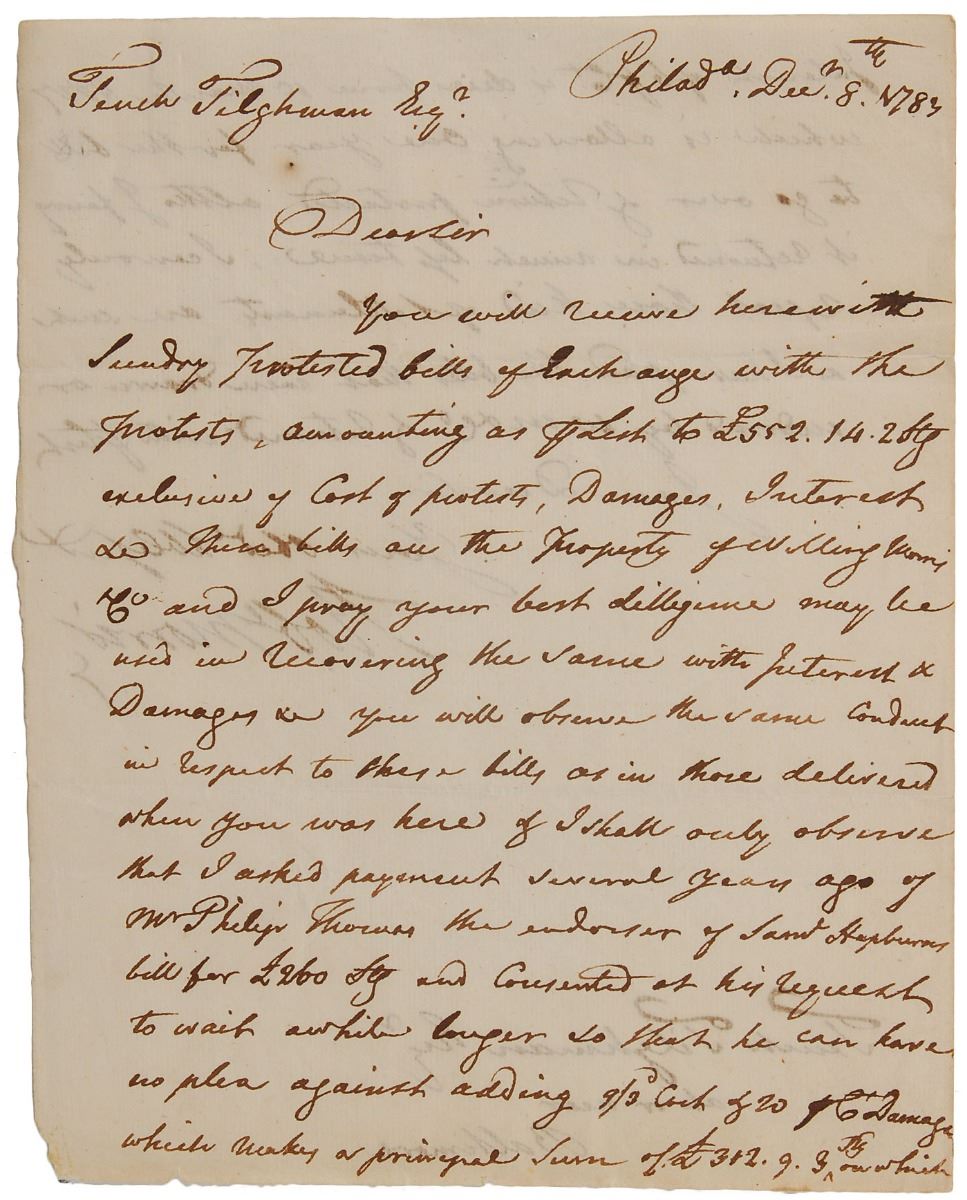 Tench Tilghman Esqr.
Philada. Decr. 8th. 1783
Dear Sir
You will receive herewith
Sundry protested bills of Exchange with the
protests, amounting as ⅌ List to £552.14.2 Stg
exclusive of Cost of protests, Damages, Interest
&c These bills are the property of Willing Morris
& Co and I pray your best dilligence may be
used in recovering the same with Interest &
Damages &c you will observe the same Conduct
in respect to these bills as in those delivered
when you was here & I shall only observe
that I asked payment several years ago of
Mr Philip Thomas the endorser of Saml Hepburns
bill for £260 Stg and Consented at his request
to wait awhile longer so that he can have
no plea against adding 9/3 Cost & 20 ⅌ Ct Damage
which makes a principal Sum of £312.9.3 Stg on which